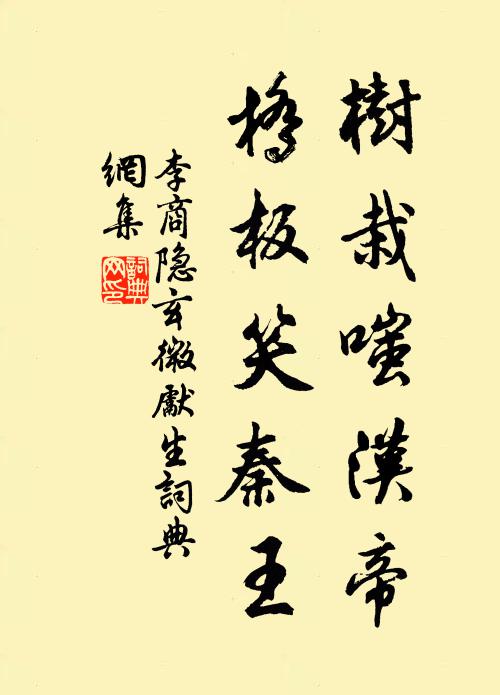 樹栽嗤漢帝
橋板笑秦王
李商隐玄微獻生詞典
網集
詞典網印